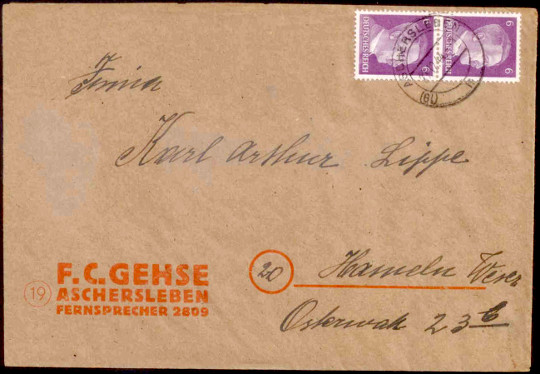 DEUTSCHES REICH 6
DEUTSCHES REICH 6
ASCHERSLEBEN
(19)
Firma
Karl Arthur Lippe
20 Hameln Weser
23
19
F.C. GEHSE
ASCHERSLEBEN
FERNSPRECHER 2809